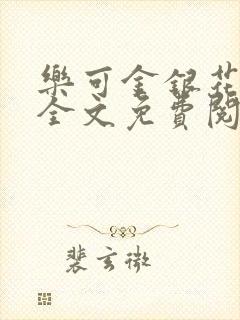 樂可金銀花
全文免費閱
裴玄微